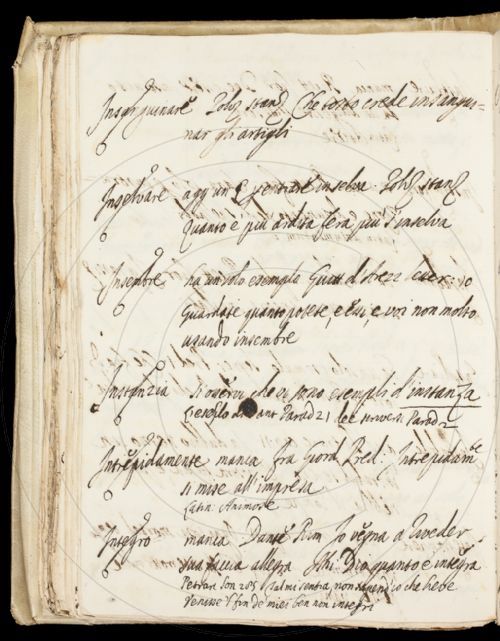 Insanguinare Poliz stanz Che tosto crede insangui-
nar gli artigli
Inselvare agg un E per entrare in selva. Poliz stanz
Quanto è più ardita fera più s'inselva
Insembre ha un solo esempio Guitt d'Arez
Guardate quanto potete, e lui, e voi non molto
usando insembre
Instanzia si osservi che vi sono esempli d'instanza
Parad 21 Parad 2
Intrepidamente manca fra Giord Pred. Intrepidamte
si mise all'impresa
Latin Animose
Integro manca Dante Rim Io vegna a riveder
sua faccia allegra Ohi Dio quanto è integra
Petrar son 205 non sapendo che
Venisse 'l fin de miei ben non integri